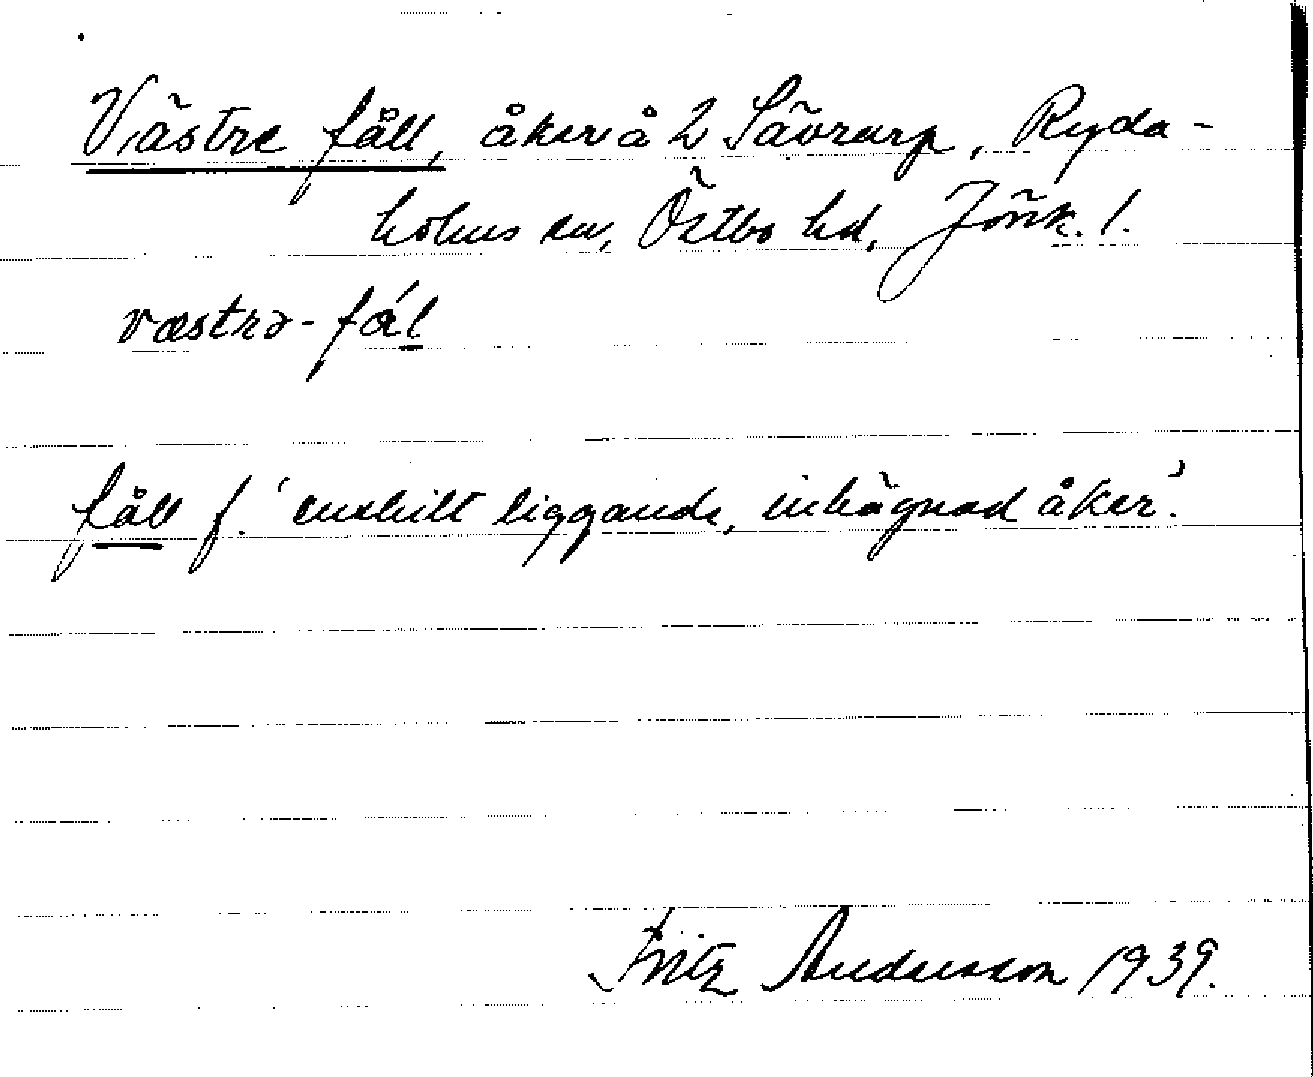 Västre fåll, åker å 2 Sävrarp, Ryda-
holms sn, Östbo hd, Jönk. l.
væstrə-fál
fåll f. 'enskilt liggande, inhägnad åker'.
Fritz Andersson 1939.